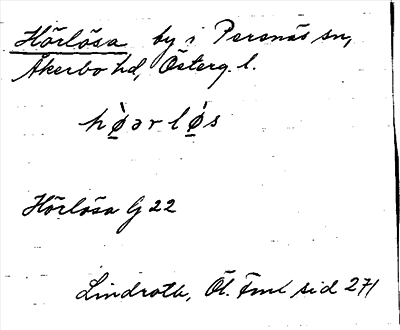 Hörlösa by i Persnäs sn,
Åkerbo hd, Österg. l.
hø̀ərlø̀s
Hörlösa G 22
Lindroth, Öl. Fml sid 271